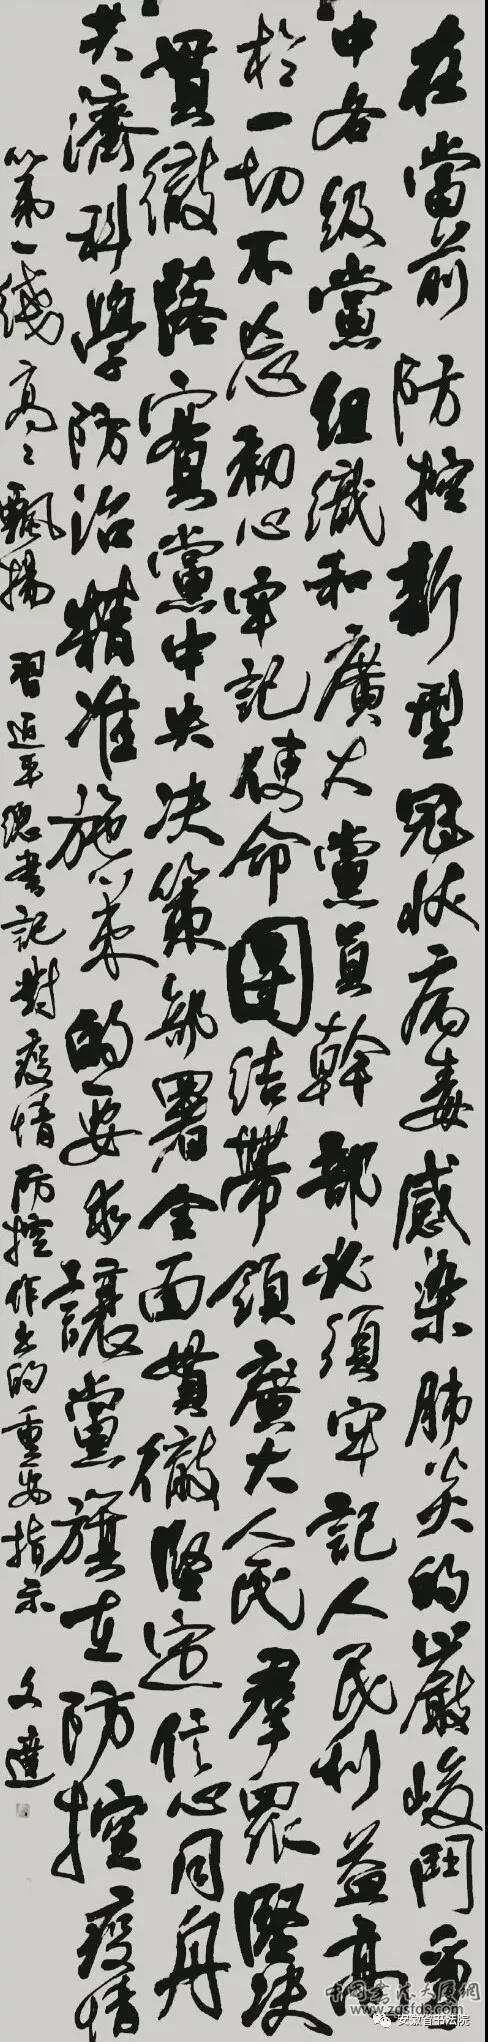 在當前防控新型冠狀病毒感染肺炎的嚴峻鬥爭
中各級黨組織和廣大黨員幹部必須牢記人民利益高
於一切不忘初心牢記使命團结帶領廣大人民羣眾堅决
貫徹落實黨中央决策部署全面貫徹堅定信心同舟
共濟科學防治精准施策的要求讓黨旗在防控疫情
第一綫高高飄揚 習近平總書記對疫情防控作出的重要指示 文達
中国书法大展网
www.zgsfds.com
安徽省书法院